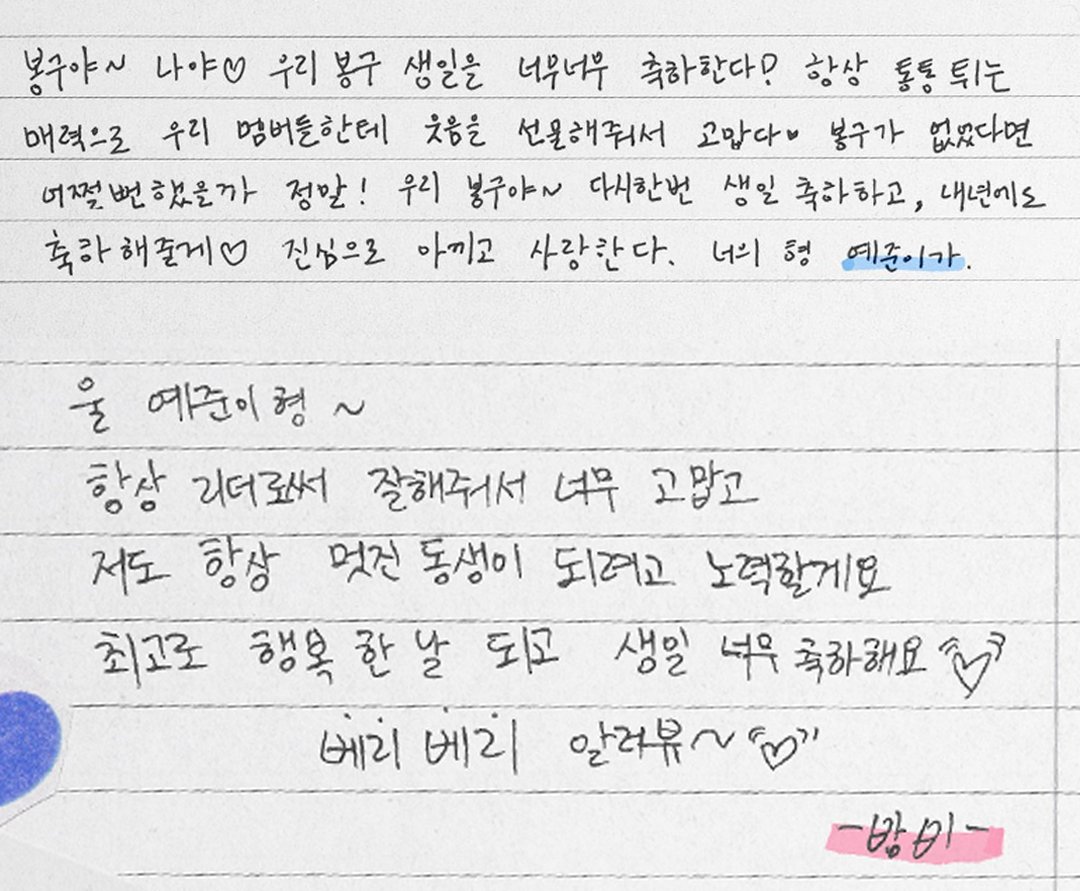 봉구야~ 나야♡ 우리 봉구 생일을 너무너무 축하한다? 항상 통통 튀는
매력으로 우리 멤버들한테 웃음을 선물해줘서 고맙다♥ 봉구가 없었다면
어쩔뻔했을까 정말! 우리 봉구야~ 다시한번 생일 축하하고, 내년에도
축하해줄게♡ 진심으로 아끼고 사랑한다. 너의 형 예준이가.
울 예준이형 ~
항상 리더로써 잘해줘서 너무 고맙고
저도 항상 멋진 동생이 되려고 노력할게요
최고로 행복한 날 되고 생일 너무 축하해요 "♡"
베리 베리 알러뷰~ "♡"
-밤비-